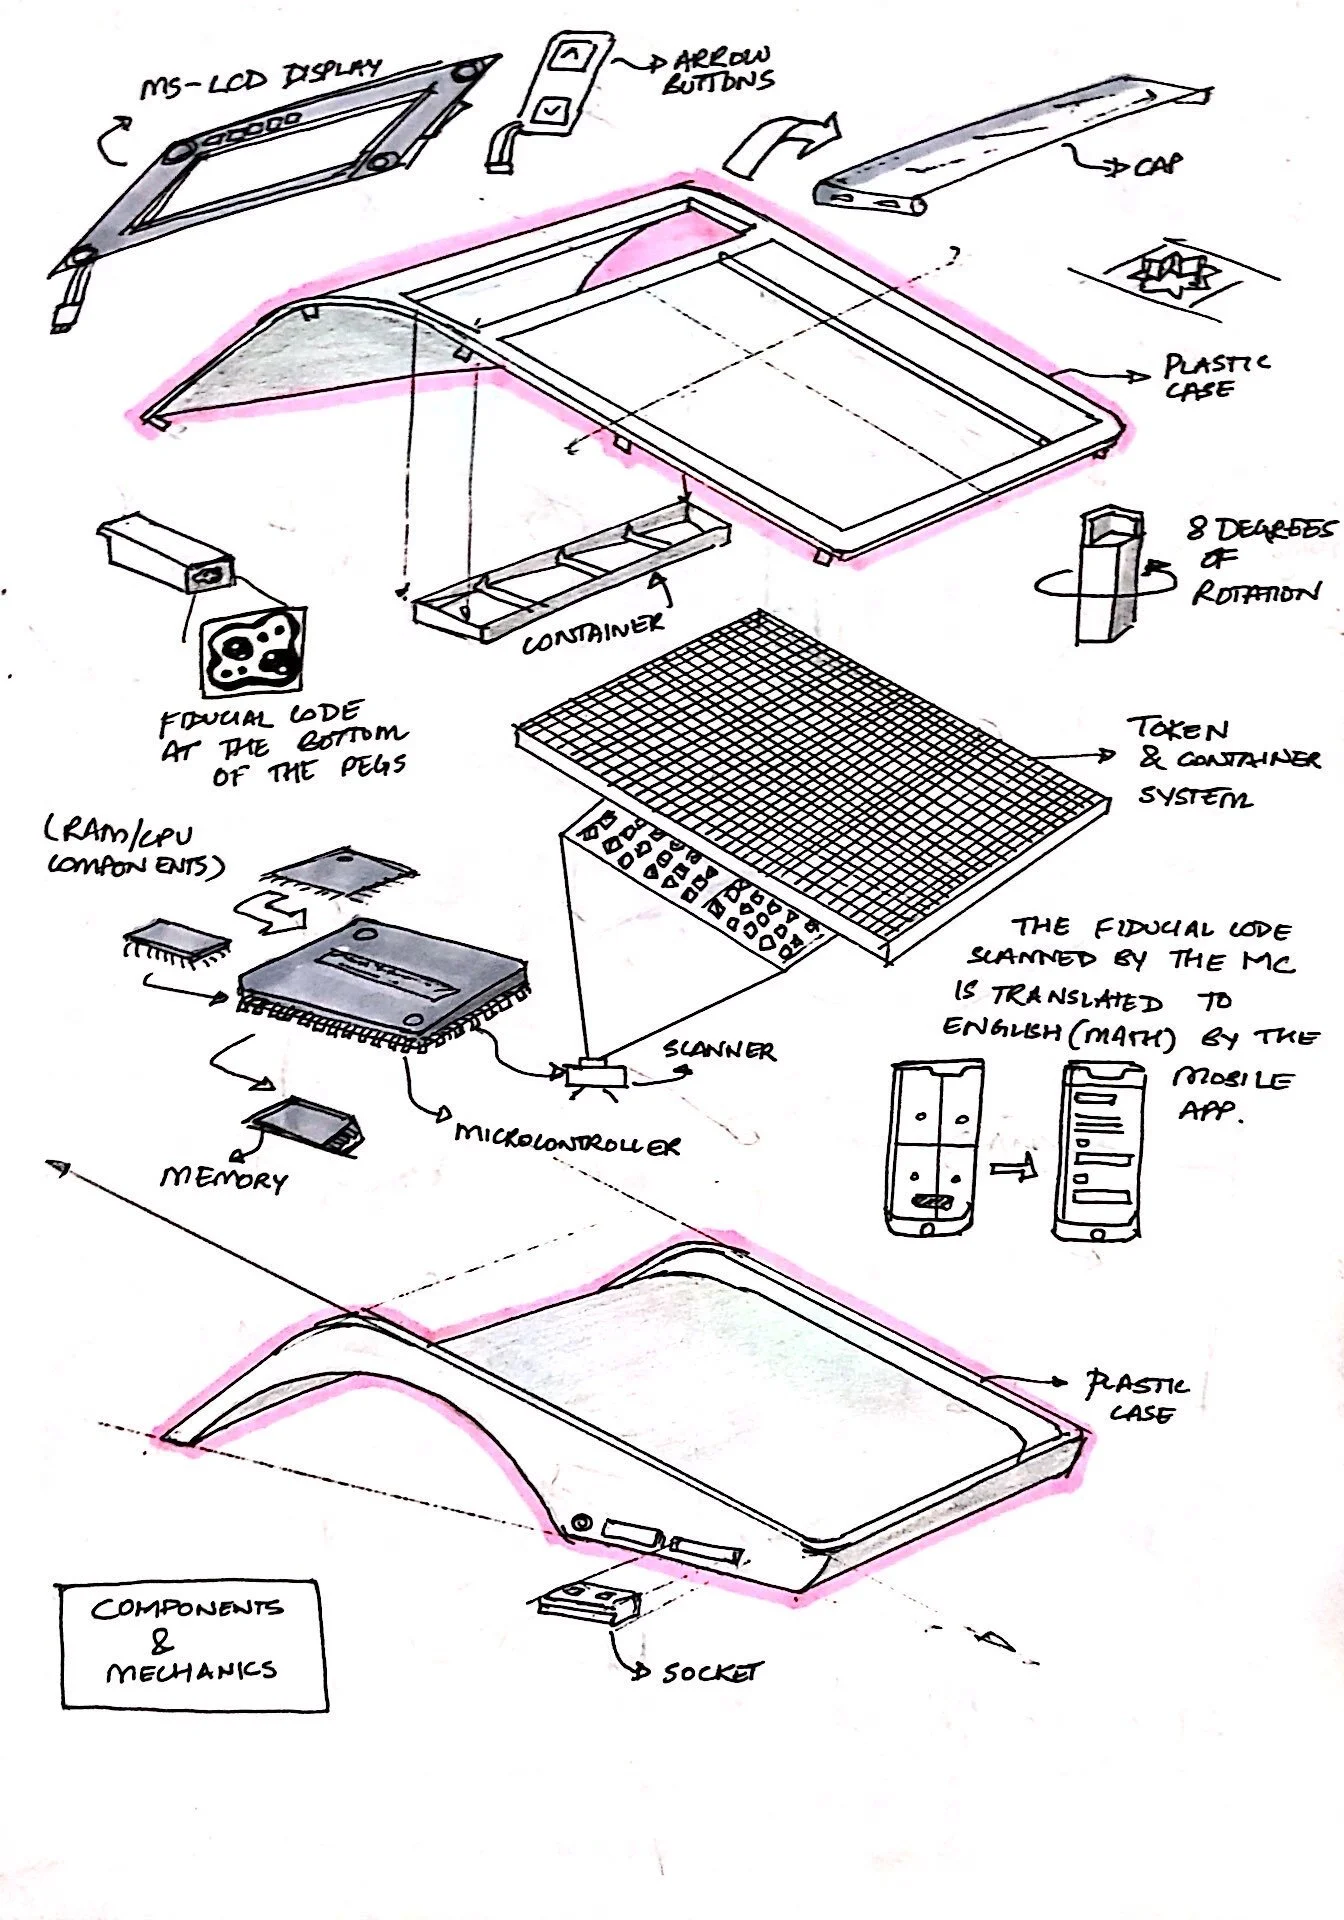 MS-LCD DISPLAY
ARROW
BUTTONS
CAP
PLASTIC
CASE
8 DEGREES
OF
ROTATION
CONTAINER
FIDUCIAL CODE
AT THE BOTTOM
OF THE PEGS
TOKEN
& CONTAINER
SYSTEM
(RAM/CPU
COMPONENTS)
THE FIDUCIAL CODE
SCANNED BY THE MC
IS TRANSLATED TO
ENGLISH (MATH) BY THE
MOBILE
APP.
SCANNER
MICROCONTROLLER
MEMORY
PLASTIC
CASE
SOCKET
COMPONENTS
&
MECHANICS